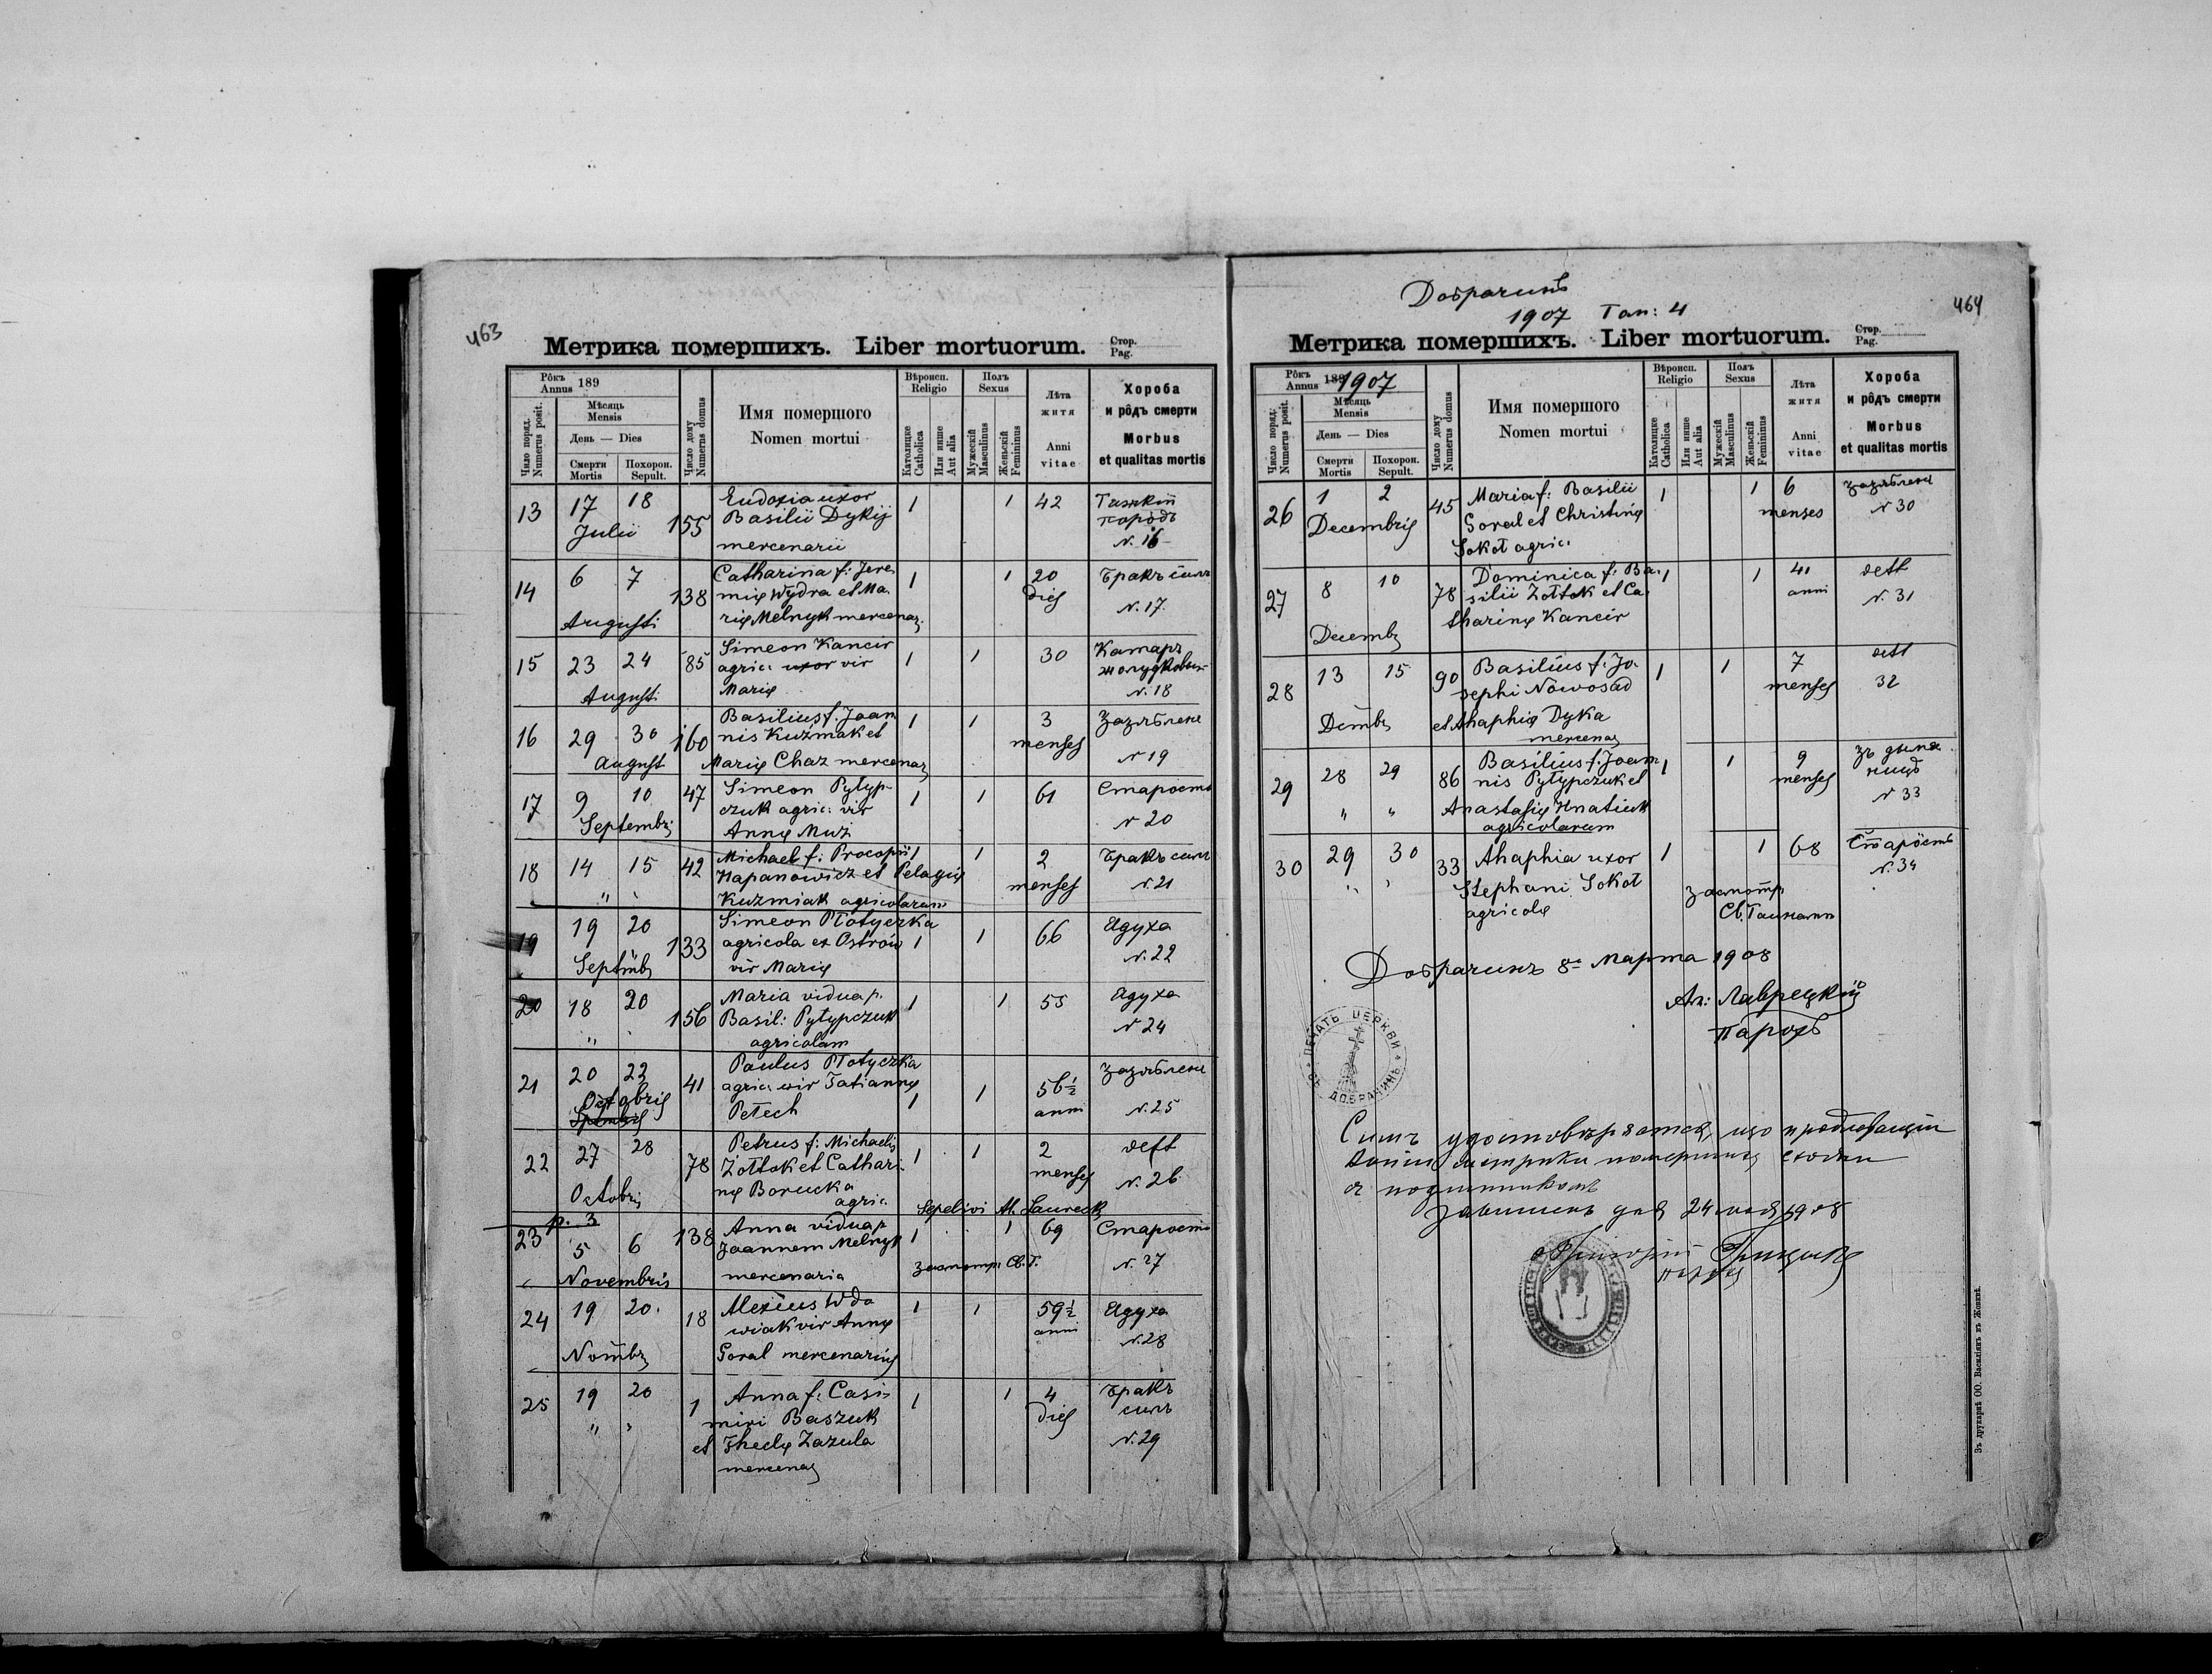 463
Метрика помершихъ. Liber mortuorum. Стор. Pag.
Рôкъ Annus 189
Число поряд. Numerus posit.
Мѣсяць Mensis
День — Dies
Смерти Mortis
Похорон. Sepult.
Число дому Numerus domus
Имя помершого
Nomen mortui
Вѣроисп. Religio
Католицке Catholica
Или инше Aut alia
Полъ Sexus
Мужескій Masculinus
Женьскій Femininus
Лѣта житя
Anni vitae
Хороба
и рôдъ смерти
Morbus
et qualitas mortis
13 17 18 155 Eudoxia uxor 1 1 42 Тяжкій
Julii Basilii Dykij породъ
mercenarii N. 16
14 6 7 138 Catharina f: Jere- 1 1 20 Бракъ силъ
mię Wydra et Ma- dies
Augusti rię Melnyk mercenar. N. 17.
15 23 24 85 Simeon Kancir 1 1 30 Катаръ
agric: uxor vir жолудковый
Augusti Marię N. 18
16 29 30 160 Basilius f. Joan 1 1 3 Зазяблене
nis Kuźmak et menses
August Marię Chaz mercenar. N 19
17 9 10 47 Simeon Pyłyp- 1 1 61 Старость
Septembr. czuk agric: vir N 20
Annę Muzi
18 14 15 42 Michael f: Procopii 1 1 2 Бракъ силъ
" " Hapanowicz et Pelagię menses N. 21
Kuzmiak agricolarum
19 19 20 133 Simeon Płotyczka 1 1 66 Ядуха
agricola ex Ostrów N. 22
Septmb. vir Marię
20 18 20 156 Maria vidua p. 1 1 55 Ядуха
" Basil: Pyłypczuk N 24
agricolam
21 20 22 41 Paulus Płotyczka 1 1 56½ Зазяблене
Octobris agric: vir Tatiannę anni
Septmbris Petech N. 25
22 27 28 78 Petrus f: Michaelis 1 1 2 detto
Żołtok et Cathari- menses
Octobr. nę Borucka N. 26
agric.
Sepelivi Al. Laureck
p. 3
23 5 6 138 Anna vidua p 1 1 69 Старость
Joannem Melnyk
Novembris mercenaria Заототр. Св. Т. N. 27
24 19 20. 18 Alexius Wdo 1 1 59½ Ядуха
wiak vir Annę anni N. 28
Novmbr. Goral mercenarius
25 19 20 1 Anna f: Casi- 1 1 4 Бракъ
" " miri Baszuk dies силъ
et Theclę Zazula N. 29
mercenar.
Добрачинъ
1907 Таб: 4
464
Метрика помершихъ. Liber mortuorum. Стор. Pag.
Рôкъ Annus 189 1907
Число поряд. Numerus posit.
Мѣсяць Mensis
День — Dies
Смерти Mortis
Похорон. Sepult.
Число дому Numerus domus
Имя помершого
Nomen mortui
Вѣроисп. Religio
Католицке Catholica
Или инше Aut alia
Полъ Sexus
Мужескій Masculinus
Женьскій Femininus
Лѣта житя
Anni vitae
Хороба
и рôдъ смерти
Morbus
et qualitas mortis
26 1 2 45 Maria f: Basilii 1 1 6 зазяблене
Decembris Goral et Christinę menses N 30
Sokoł agric:
27 8 10 78 Dominica f: Ba- 1 1 41 dett
silii Żołtok et Ca- anni N. 31
Decembr. tharinę Kancir
28 13 15 90 Basilius f: Jo- 1 1 7 dett
sephi Nowosad menses 32
Dcmbr. et Ahaphię Dyka
mercenar.
29 28 29 86 Basilius f: Joan 1 1 9 зъ
nis Pyłypczuk et menses N 33
" " Anastasię Hnatiuk
agricolarum
30 29 30 33 Ahaphia uxor 1 1 68 Старôсть
" " Stephani Sokoł N. 34
agricolę Св. Тайнами
Добрачинъ 8 Марта 1908
Ал: Лаврецкій
парохъ
ПЕЧАТЬ ЦЕРКВИ ДОБРАЧИНЪ
Симъ що
метрики помершихъ
дня 24 1908
Зъ друкарнѣ ОО. Василіянъ въ Жовквѣ.